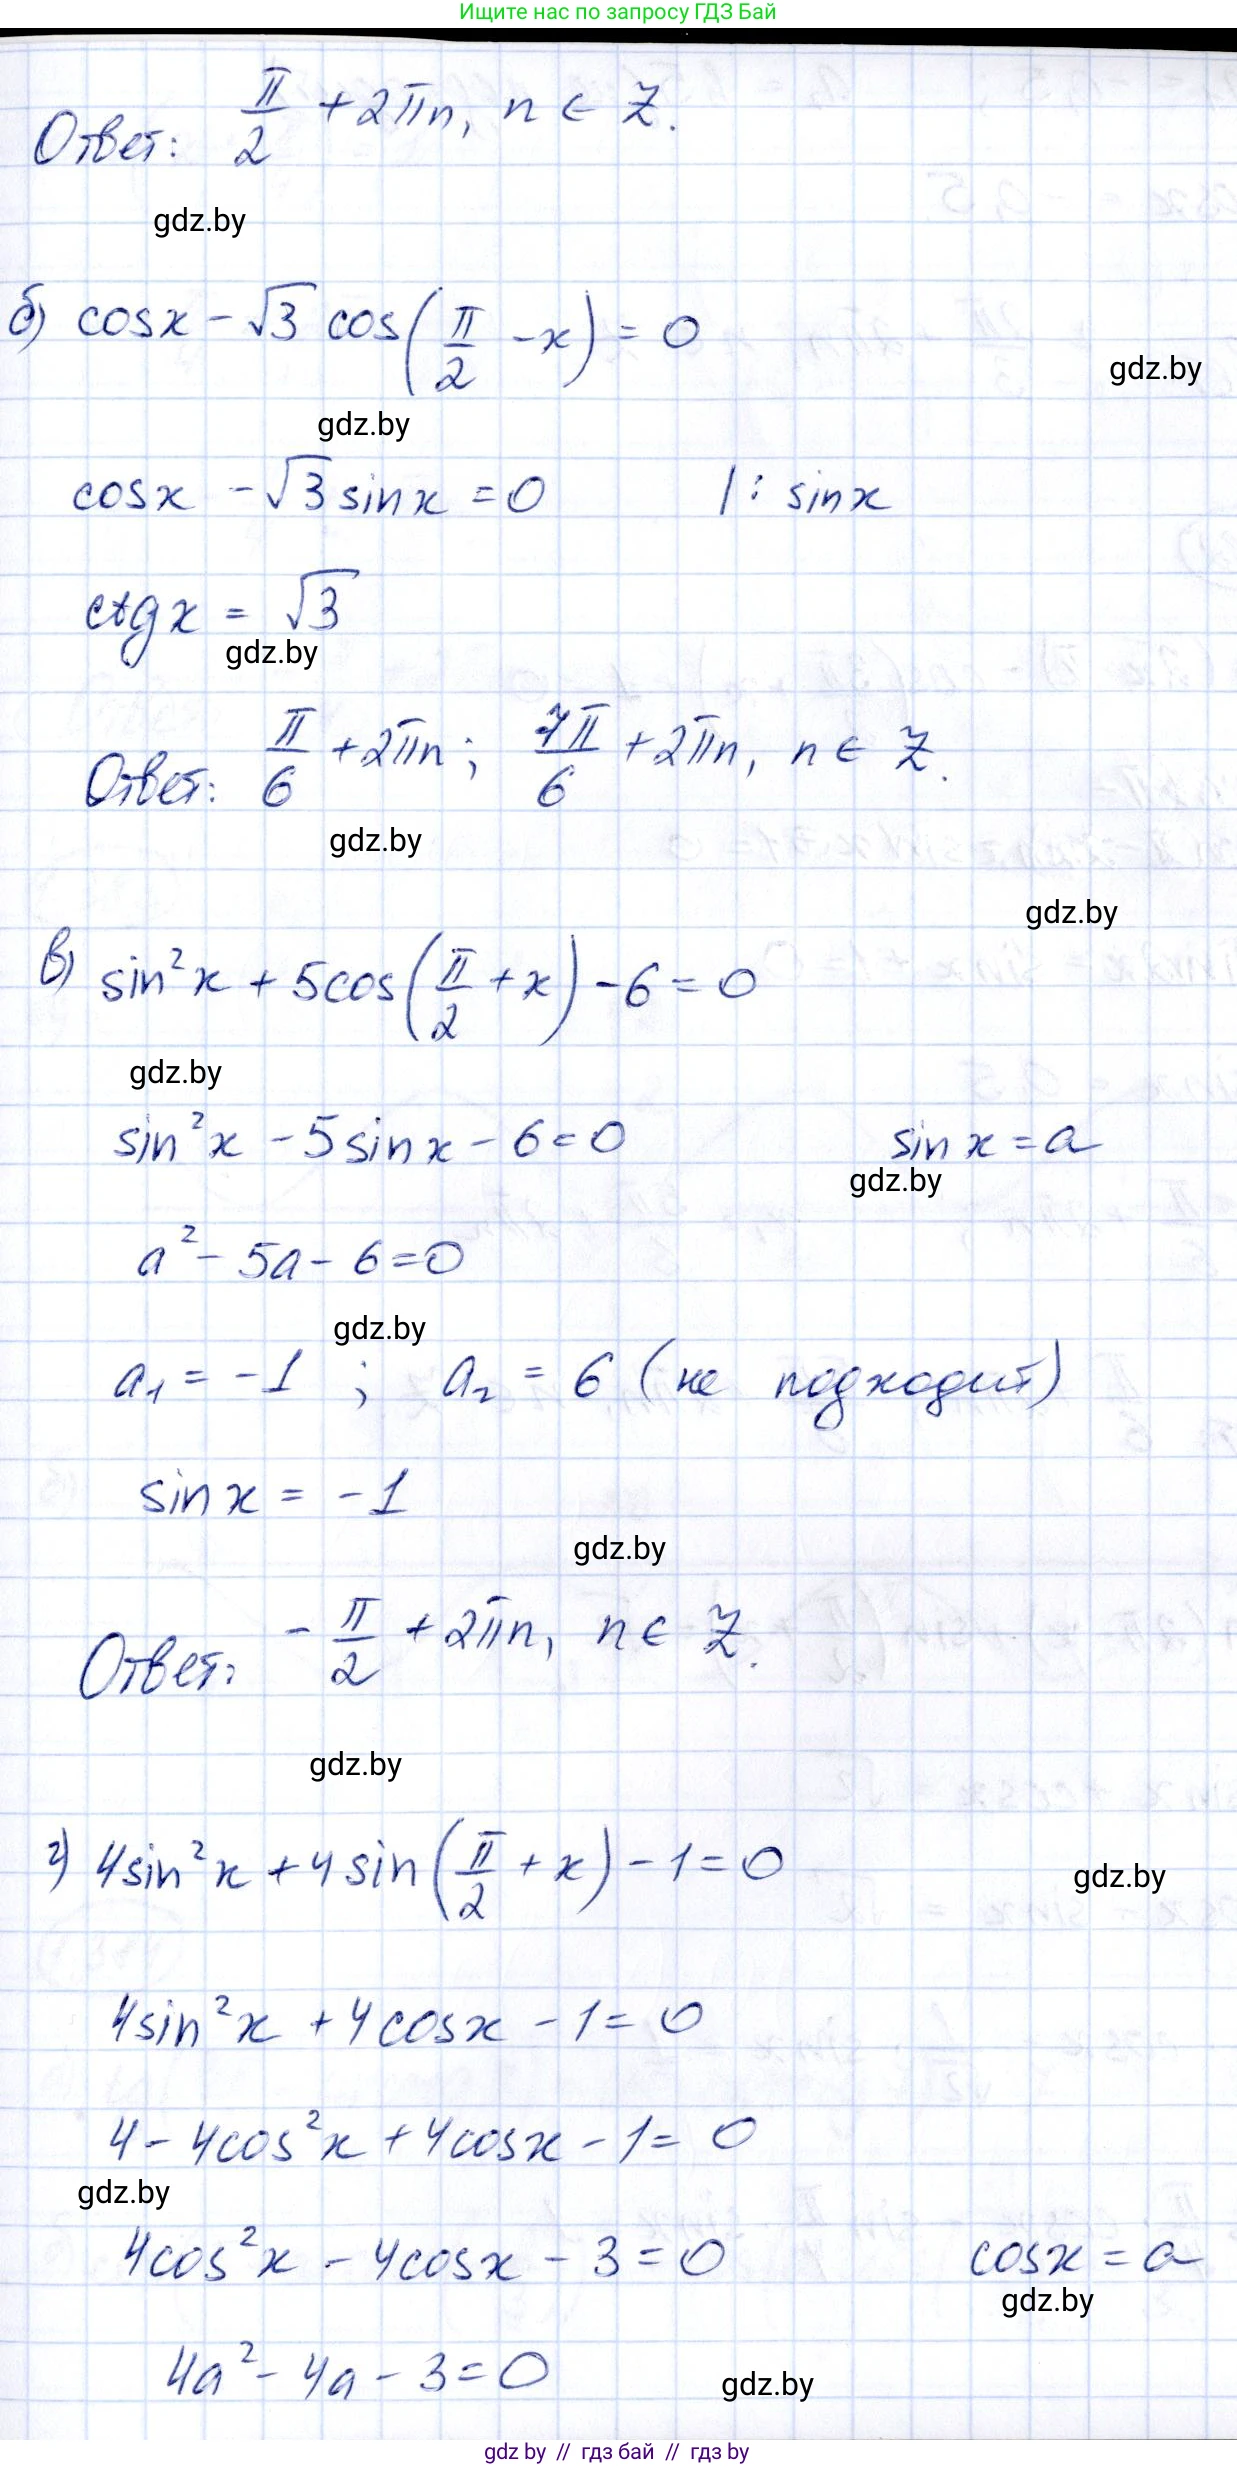 Ищите нас по запросу ГДЗ Бай
Ответ: π/2 + 2πn, n ∈ Z.
gdz.by
б) cosx - √3 cos(π/2 - x) = 0
gdz.by
gdz.by
cosx - √3 sinx = 0 | : sinx
ctgx = √3
gdz.by
Ответ: π/6 + 2πn; 7π/6 + 2πn, n ∈ Z.
gdz.by
gdz.by
в) sin²x + 5cos(π/2 + x) - 6 = 0
gdz.by
sin²x - 5sinx - 6 = 0 sinx = a
gdz.by
a² - 5a - 6 = 0
gdz.by
a₁ = -1 ; a₂ = 6 (не подходит)
sinx = -1
gdz.by
Ответ: -π/2 + 2πn, n ∈ Z.
gdz.by
г) 4sin²x + 4sin(π/2 + x) - 1 = 0
gdz.by
4sin²x + 4cosx - 1 = 0
4 - 4cos²x + 4cosx - 1 = 0
gdz.by
4cos²x - 4cosx - 3 = 0 cosx = a
gdz.by
4a² - 4a - 3 = 0
gdz.by
gdz by // гдз бай // гдз by